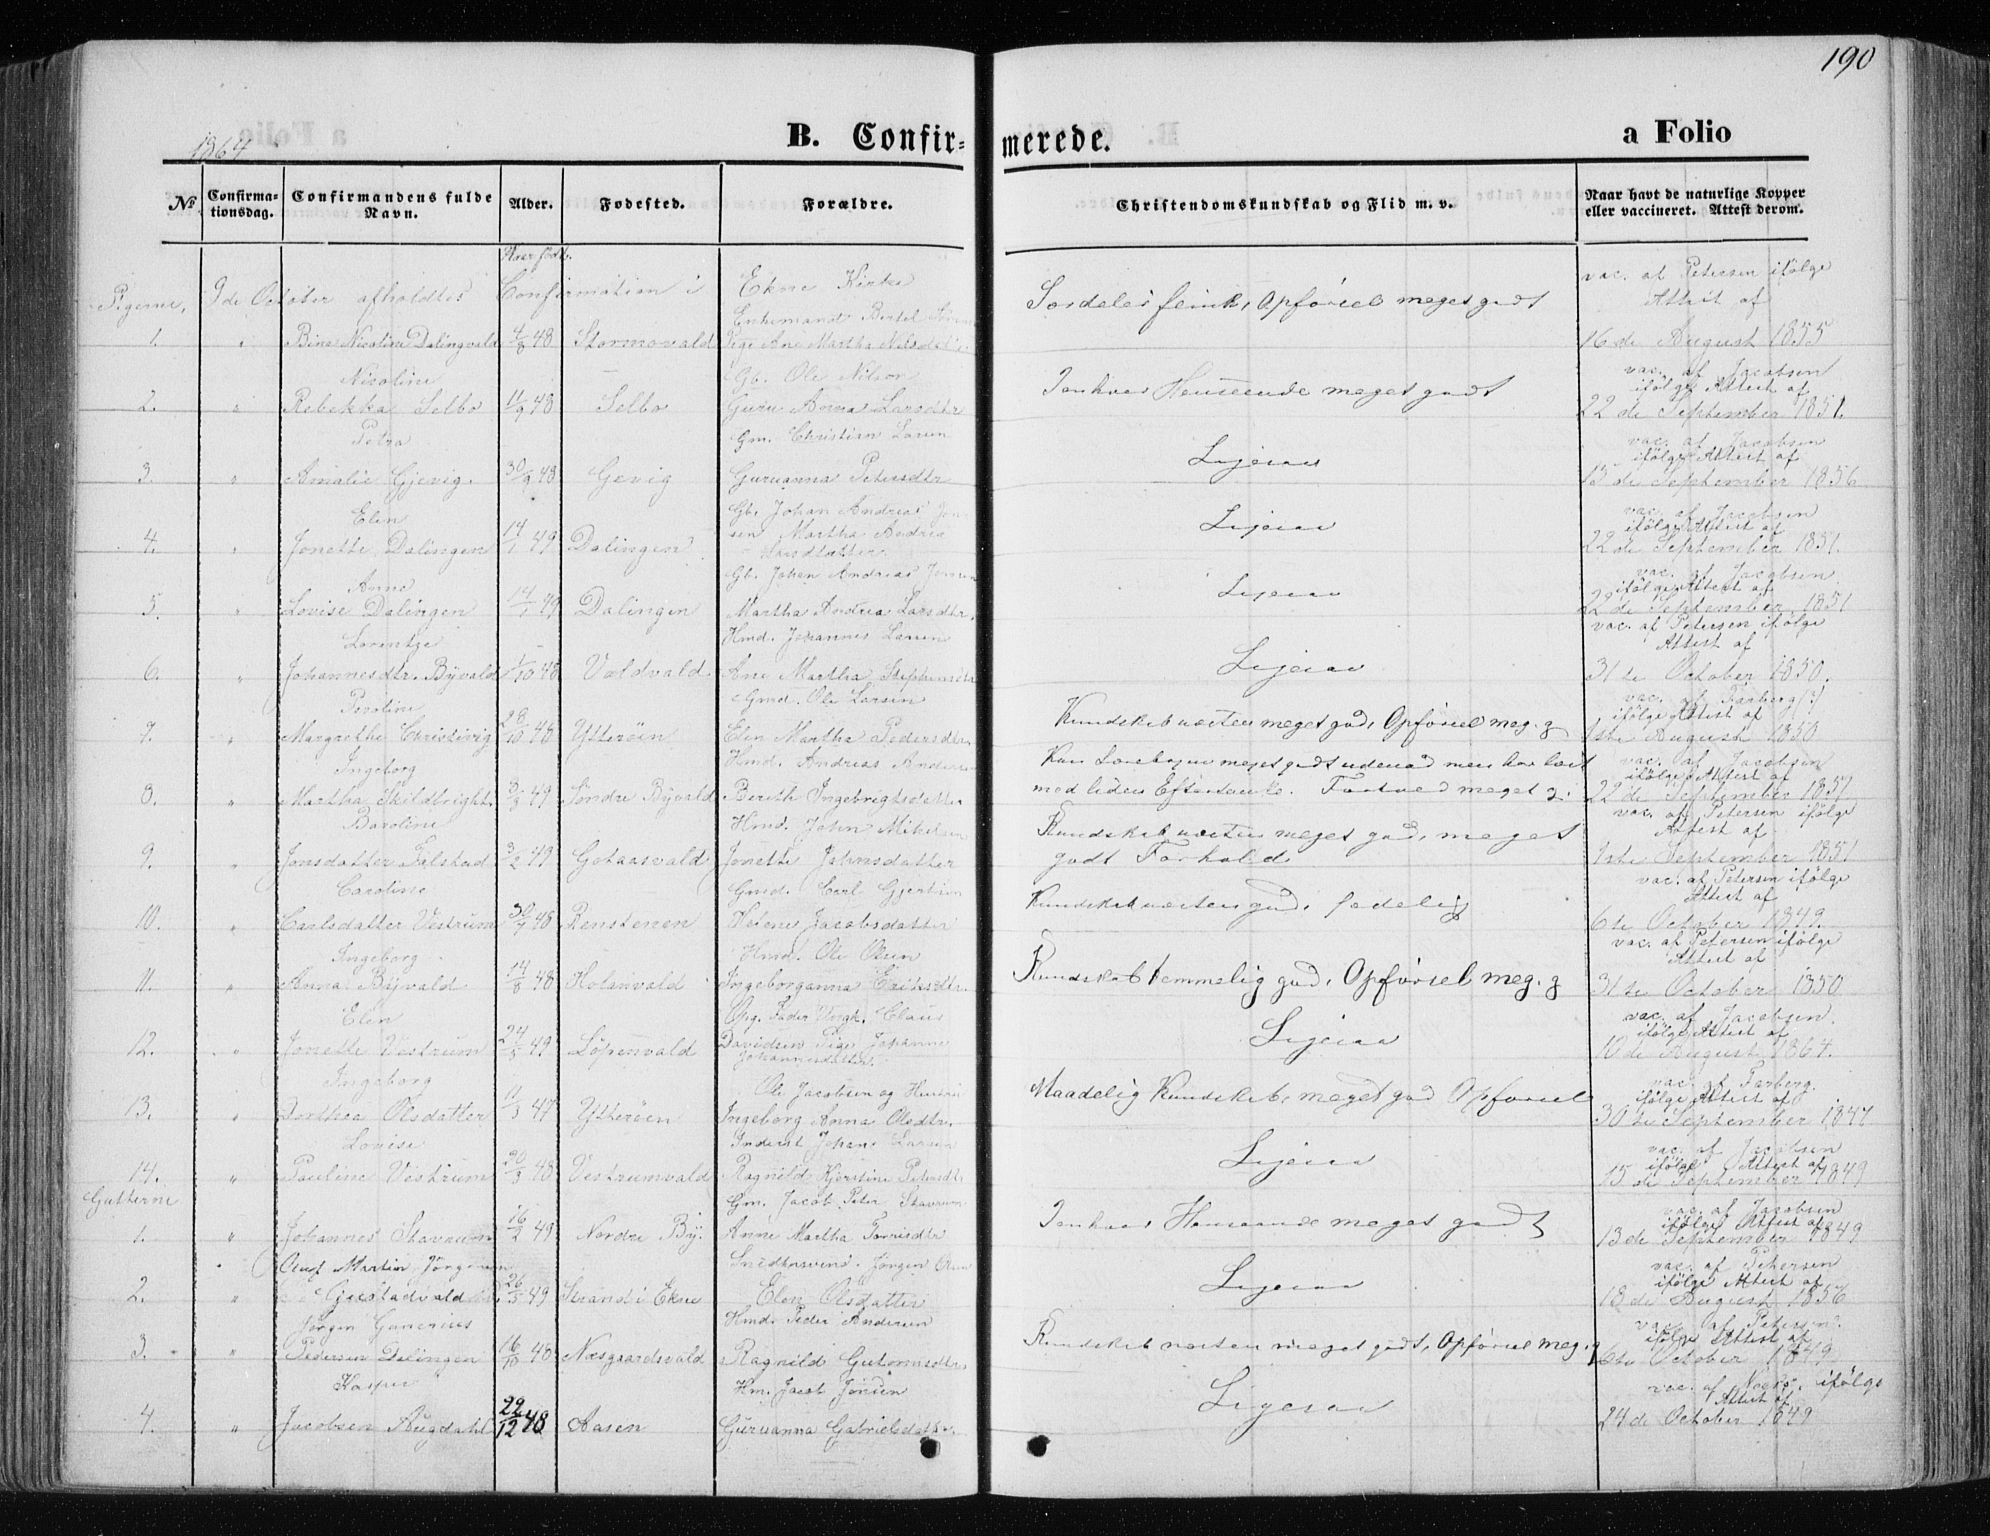 190
1864
B. Confirmerede.
a Folio
No
Confirmationsdag.
Confirmandens fulde Navn.
Alder.
Fødested.
Forældre.
Christendomskundskab og Flid m. v.
Naar havt de naturlige Kopper eller vaccineret. Attest derom.
Naar født.
Pigerne, 9de October afholdtes Confirmation i Ekne Kirke
1. " Bine Nicoline Dalingvald 4/8 48 Stormovald Enkemand Bertel Pige Ane Martha Nilsdatter Særdeles flink, Opførsel meget godt vac. af Petersen ifølge Attest af 16de August 1855
2. " Nicoline Rebekka Selbo 11/9 48 Selbo Gb. Ole Nilsen Guru Anna Larsdtr I enhver Henseende meget godt vac. af Jacobsen ifølge Attest af 22de September 1851.
3. " Petra Amalie Gjevig. 30/9 48 Gevig Gm. Christian Larsen Guruanna Petersdtr Ligesaa vac. af Jacobsen ifølge Attest af 13de September 1856
4. " Elen Jonette Dalingen 14/1 49 Dalingen Gb. Johan Andreas Jensen Martha Andrea Larsdatter Ligesaa vac. af Jacobsen ifølge Attest af 22de September 1851.
5. " Anne Lovise Dalingen 14/1 49 Dalingen Gb. Johan Andreas Jensen Martha Andrea Larsdtr. Ligesaa vac. af Jacobsen ifølge Attest af 22de September 1851
6. " Lorentze Johannesdtr. Byvald 1/10 48 Valdvald Hmd. Johannes Larsen Ane Martha Stephensdtr Ligesaa vac. af Petersen ifølge Attest af 31te October 1850.
7. " Peroline Margrethe 28/10 48 Ytterøen Gmd. Ole Larsen Elen Martha Pedersdtr. Kundskab næsten meget god, Opførsel meg. g vac. af Farberg(?) ifølge Attest af 1ste August 1850
8. " Ingeborg Martha 3/3 49 Søndre Byvald Hmd. Andreas Andersen Bereth Ingebrigtsdatter Kan Lærebogen meget godt udenad men har læst med liden Eftertanke. Forhold meget g. vac. af Jacobsen ifølge Attest af 22de September 1851
9. " Baroline Jonsdatter Falstad 3/2 49 Gotaasvald Hmd. John Mikelsen Jonette Johnsdatter Kundskab næsten meget god, meget godt Forhold vac. af Petersen ifølge Attest af 1ste September 1851
10. " Caroline Carlsdatter Vestrum 30/7 48 Renstenen Gmd. Carl Gjertsen Helene Jacobsdatter Kundskab næsten god, sædelig vac. af Petersen ifølge Attest af 6te October 1849.
11. " Ingeborg Anna Byvald 14/8 48 Holanvald Hmd. Ole Olsen Ingeborganna Eriksdtr. Kundskab temmelig god, Opførsel meg. g vac. af Petersen ifølge Attest af 31te October 1850
12. " Elen Jonette Vestrum 24/5 49 Løpenvald Opg. Fader Ungk. Claus Davidsen Pige Johanne Johannesdatter. Ligesaa vac. af Jacobsen. ifølge Attest af 10de August 1864.
13. " Ingeborg Dorthea Olsdatter 11/3 47 Ytterøen Ole Jacobsen og Hustru Ingeborg Anna Olsdtr. Maadelig Kundskab, meget god Opførsel vac. af Farberg. ifølge Attest af 30te September 1847
14. " Lovise Pauline Vestrum 20/3 48 Vestrumvald Inderst Johan Larsen Ragnild Kjerstine Petersdtr Ligesaa vac. af Jacobsen ifølge Attest af 15de September 1849
Gutterne
1. " Johannes Stavrum 16/2 49 Nordre By. Gm. Jacob Peter Stavrum Anne Martha Torrisdtr I enhver Henseende meget godt vac. af Jacobsen ifølge Attest af 13de September 1849
2. " Olaf Martin Jørgensen Gjeistadvald 26/5 49 Strand i Ekne Snedkersvend. Jørgen Olsen Elen Olsdatter Ligesaa vac. af Petersen ifølge Attest af 18de August 1856
3. " Jørgen Pedersen Dalingen 16/10 48 Næsgaardsvald Hmd. Peder Andersen Ragnild Guttormsdtr. Kundskab næsten meget godt, Opførsel meg. g vac. af Petersen. ifølge Attest af 6te October 1849
4. " Kasper Jacobsen Augdahl 22/12 48 Aasen Hm. Jacob Jonsen Guruanna Gabrielsdatter. Ligesaa vac. af ifølge Attest af 24de October 1849